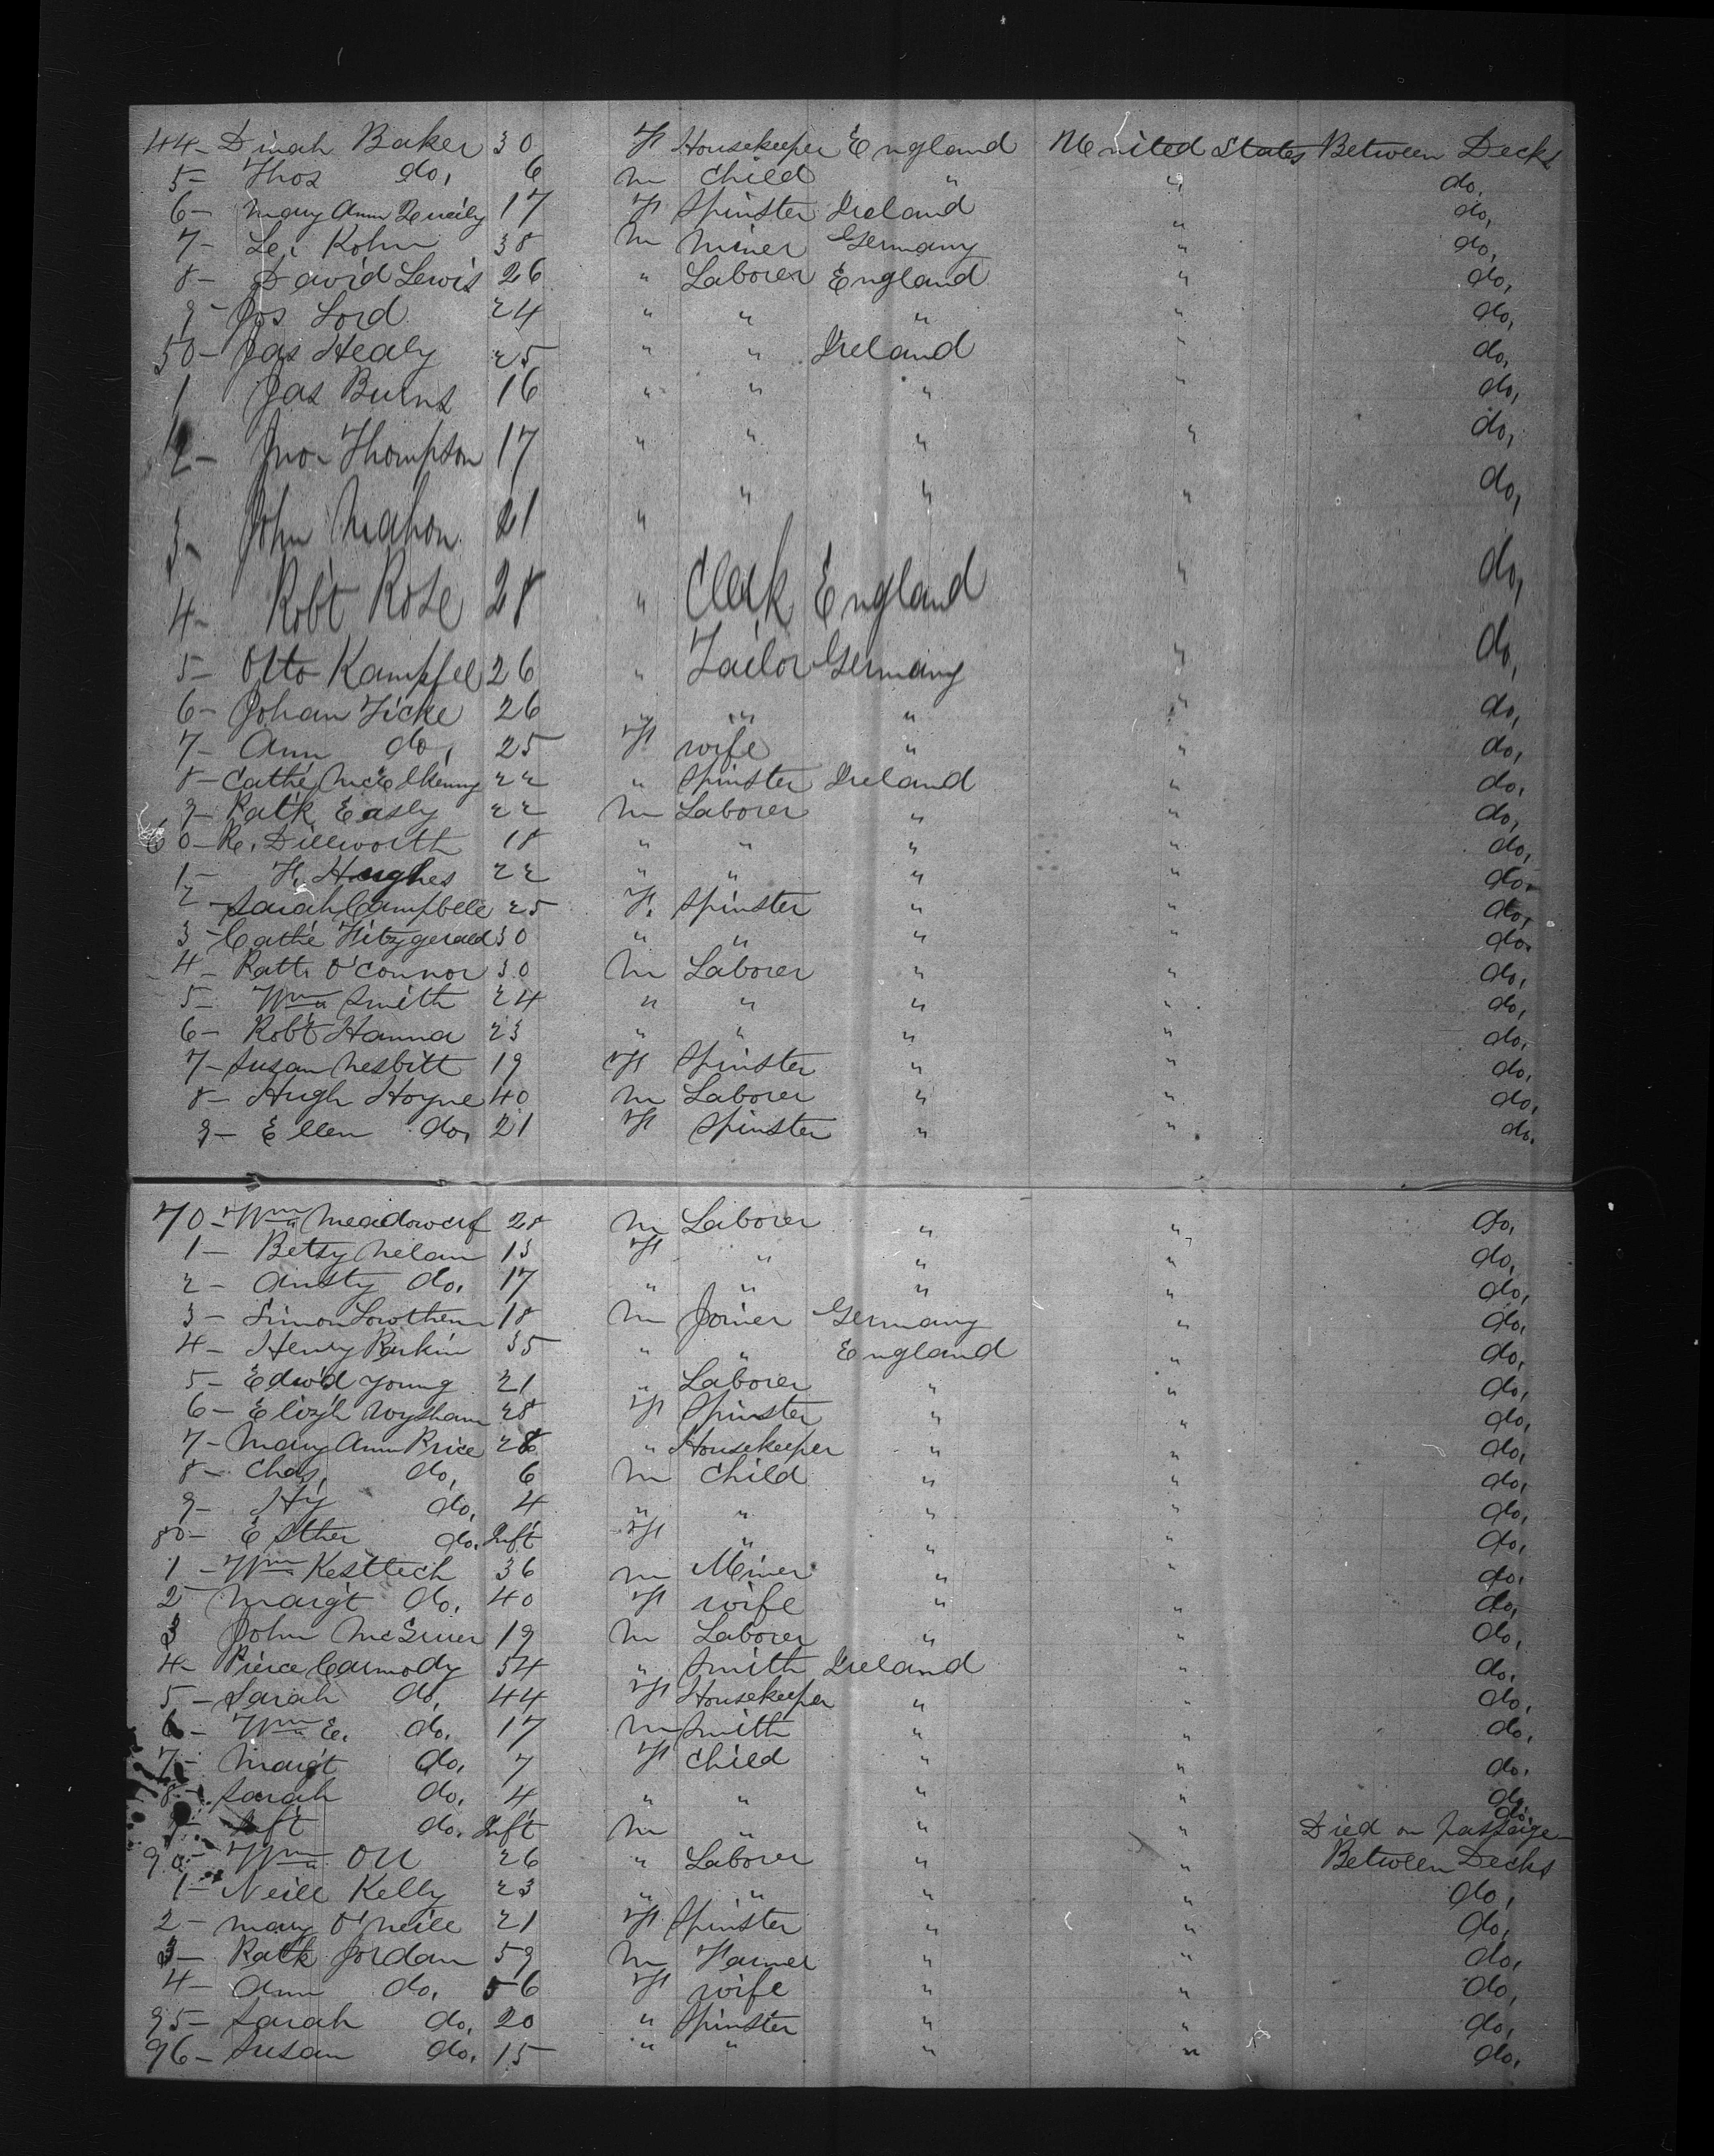 44- Dinah Baker 30 F Housekeeper England United States Between Decks
5- Thos do, 6 M Child " " do.
6- Mary Ann 17 F Spinster Ireland " do,
7- Kohn 38 M Miner Germany " do,
8- David Lewis 26 " Laborer England " do,
9- Jos Lord 24 " " " " do,
50- Jas Healy 25 " " Ireland " do,
1 Jas Burns 16 " " " " do,
2- Jno- Thompson 17 " " " " do,
3- John Mahon 21 " " " " do,
4- Robt Rose 28 " Clerk England " do,
5- Otto Kampfel 26 " Tailor Germany " do,
6- Johan Ficke 26 " " " " do,
7- Ann do, 25 F wife " " do,
8- Cathe 22 " Spinster Ireland " do,
9- Patk Easly 22 M Laborer " " do,
60- R. Dillworth 18 " " " " do,
1- H. Hughes 22 " " " " do.
2- Sarah Campbell 25 F. Spinster " " do,
3- Cathe Fitzgerald 30 " " " " do.
4- Patk O'Connor 30 M Laborer " " do,
5- Wm Smith 24 " " " " do,
6- Robt Hanna 23 " " " " do.
7- Susan Nesbitt 19 F Spinster " " do,
8- Hugh Hoyne 40 M Laborer " " do,
9- Ellen do, 21 F Spinster " " do.
70- Wm 28 M Laborer " " do,
1- Betsy Nelan 13 F " " " do,
2- Ansty do. 17 " " " " do,
3- Simon 18 M Joiner Germany " do,
4- Henry Parkin 35 " " England " do,
5- Edwd Young 21 " Laborer " " do,
6- Elizh 28 F Spinster " " do,
7- Mary Ann Price 28 " Housekeeper " " do,
8- Chas, do, 6 M Child " " do,
9- Hy do, 4 " " " " do,
80- Esther do. Inft F " " do,
1- Wm Kesttech 36 M Miner " " do.
2 Margt do. 40 F wife " " do,
3 John 19 M Laborer " " do,
4- Pierce Carmody 54 " Smith Ireland " do.
5- Sarah do, 44 F Housekeeper " " do,
6- Wm E. do. 17 M Smith " " do.
7- Margt do, 7 F Child " " do.
8- Sarah do. 4 " " " " do.
9- Inft do. Inft M " " " do. Died on passage-
90- Wm Orr 26 " Laborer " " Between Decks
1- Neill Kelly 23 " " " " do,
2- Mary O'Neill 21 F Spinster " " do,
3- Patk Jordan 59 M Farmer " " do,
4- Ann do. 56 F wife " " do,
95- Sarah do, 20 " Spinster " " do,
96- Susan do. 15 " " " " do,